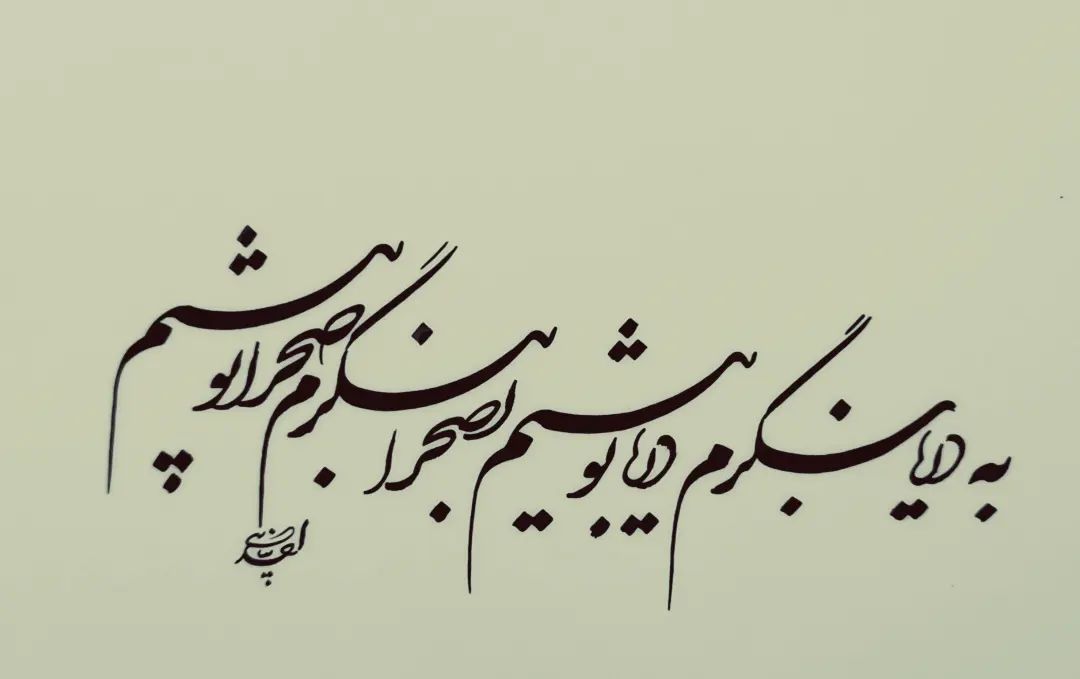 به دریا بنگرم دریا تو بینم بصحرا بنگرم صحرا تو بینم